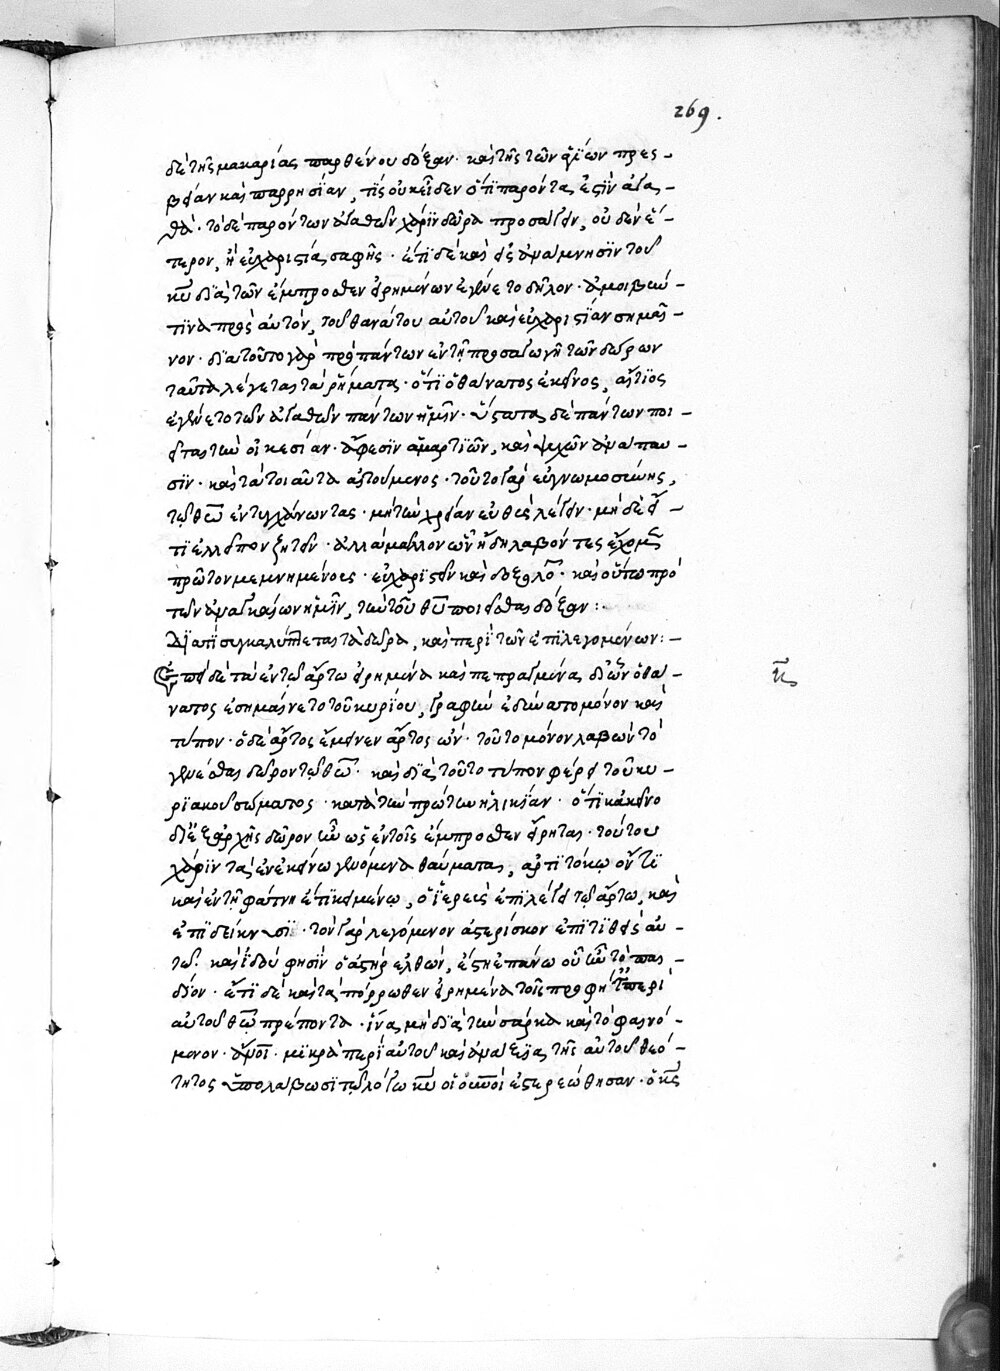 269.
δὲ τῆς μακαρίας παρθένου δόξαν· καὶ τῆς τῶν ἁγίων πρεσ-
βείαν καὶ παρρησίαν, τίς οὐκ οἶδεν ὅτι παρόντα ἐστὶν ἀγα-
θά· τὸ δὲ παρόντων ἀγαθῶν χάριν δῶρα προσάγειν, οὐδὲν ἕ-
τερον, ἢ εὐχαριστία σαφής· ἔτι δὲ καὶ εἰς ἀνάμνησιν τοῦ
κυ διὰ τῶν ἔμπροσθεν εἰρημένων ἐγένετο δῆλον· ἀμοιβήν
τινα πρὸς αὐτὸν, τοῦ θανάτου αὐτοῦ καὶ εὐχαριστίαν σημαῖ-
νον· διὰ τοῦτο γὰρ πρὸ πάντων ἐν τῇ προσαγωγῇ τῶν δώρων
ταῦτα λέγεται τὰ ῥήματα· ὅτι ὁ θάνατος ἐκεῖνος, αἴτιος
ἐγένετο τῶν ἀγαθῶν πάντων ἡμῖν· ὕστατα δὲ πάντων ποι-
εῖται τὴν οἰκεσίαν· ἄφεσιν ἁμαρτιῶν, καὶ ψυχῶν ἀνάπαυ-
σιν· καὶ τὰ τοιαῦτα αἰτούμενος· τοῦτο γὰρ εὐγνωμοσύνης,
τῷ θῶ ἐντυγχάνοντας· μὴ τὴν χρείαν εὐθὺς λέγειν· μὴ δὲ εἴ
τι ἐλλεῖπον ζητεῖν· ἀλλὰ μᾶλλον ὧν ἤδη λαβόντες ἔχομεν
πρῶτον μεμνημένους· εὐχαριστεῖν καὶ δοξολο· καὶ οὕτω πρὸ
τῶν ἀναγκαίων ἡμῖν, τὴν τοῦ θυ ποιεῖσθαι δόξαν:
Διατί συγκαλύπτεται τὰ δῶρα, καὶ περὶ τῶν ἐπιλεγομένων:-
Ἐπεὶ δὲ τὰ ἐν τῷ ἄρτω εἰρημένα καὶ πεπραγμένα, δι' ὧν ὁ θά-
νατος ἐσημαίνετο τοῦ κυρίου, γραφὴν ἐδίνατο μόνον καὶ
τύπον· ὁ δὲ ἄρτος ἔμεινεν ἄρτος ὤν· τοῦτο μόνον λαβὼν τὸ
γενέσθαι δῶρον τῷ θῶ· καὶ διὰ τοῦτο τύπον φέρει τοῦ κυ-
ριακοῦ σώματος· κατὰ τὴν πρώτην ἡλικίαν· ὅτι κἀκεῖνο
δι' ἐξαρχῆς δῶρον ἦν ὡς ἐν τοῖς ἔμπροσθεν εἴρηται· τούτου
χάριν τὰ ἐν ἐκείνω γενόμενα θαύματα, ἀρτιτόκω ὄντι
καὶ ἐν τῇ φάτνη ἔτι κειμένω, ὁ ἱερεὺς ἐπιλέγει τῷ ἄρτω, καὶ
ἐπιδείκνυσι· τὸν γὰρ λεγόμενον ἀστερίσκον ἐπιτιθεὶς αὐ-
τῷ· καὶ ἰδού φησιν ὁ ἀστὴρ ἐλθὼν, ἔστη ἐπάνω οὗ ἦν τὸ παι-
δίον· ἔτι δὲ καὶ τὰ πόρρωθεν εἰρημένα τοῖς προφήταις περὶ
αὐτοῦ θῶ πρέποντα· ἵνα μὴ διὰ τὴν σάρκα καὶ τὸ φαινό-
μενον· ἄνοι· μικρὰ περὶ αὐτοῦ καὶ ἀνάξια τῆς αὐτοῦ θεό-
τητος ὑπολάβωσι τῷ λόγω κυ οἱ οὐνοὶ ἐστερεώθησαν· ὁ κς